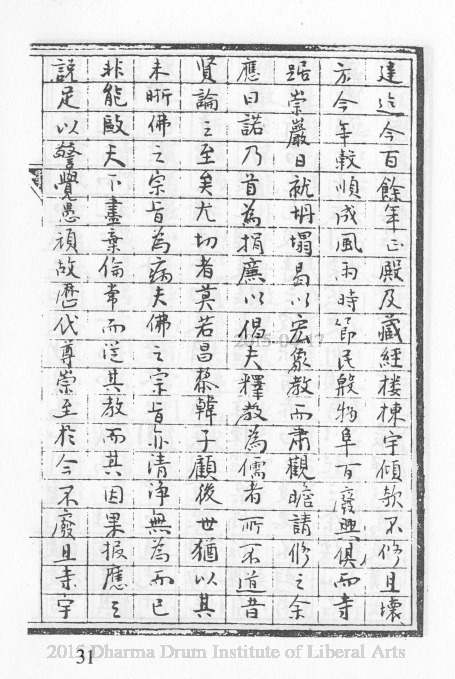 建迄今百餘年正殿及藏經楼棟宇傾欹不修且壞
方今年穀順成風雨時節民殷物阜百廢興俱而寺
踞崇嚴日就坍塌曷以宏象教而肅觀瞻請修之余
應曰諾乃首為捐廉以倡夫釋教為儒者所不道昔
賢論之至矣尤切者莫若昌黎韓子顧後世猶以其
未晣佛之宗旨為病夫佛之宗旨亦清淨無為而已
非能毆天下盡棄倫常而從其教而其因果报應之
説足以警覺愚頑故歷代尊崇至於今不廢且寺宇
31
Dharma Drum Institute of Liberal Arts